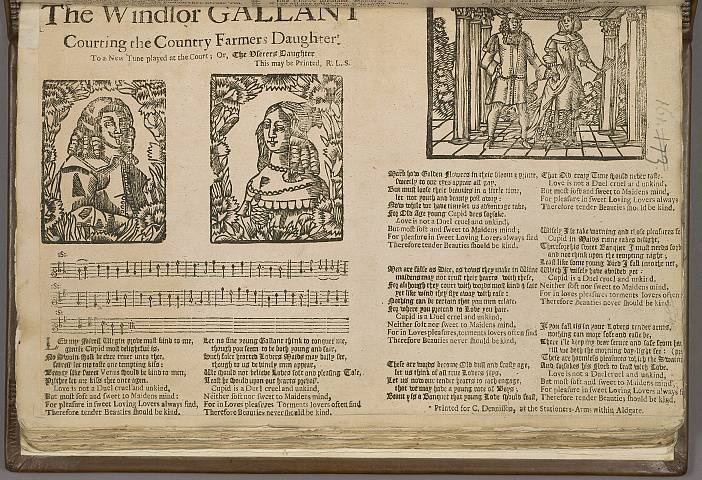 The Windsor GALLANT
Courting the Country Farmers Daughter.
To a New Tune played at the Court; Or, The Userers Daughter
This may be Printed, R. L. S.
Let my fairest Virgin prove most kind to me,
gentle Cupid most delightful is.
No Swain shall be ever truer unto thee,
sweetest let me taste a tempting kiss:
Beauty like sweet Venus should be kind to men,
Love is not a Duel cruel and unkind,
But most soft and sweet to Maidens mind:
For pleasure in sweet Loving Lovers always find,
Therefore tender Beauties should be kind.
Let no fine young Gallant think to conquer me,
though you seem to be both young and fair,
Such false hearted Lovers Maids may daily see,
though to us devinely men appear,
We should not believe Lovers soft and pleasing Tale,
Least he should upon our hearts prevail.
Cupid is a Duel cruel and unkind,
Neither soft nor sweet to maidens mind,
For in Loves pleasures Torments lovers often find
Therefore tender Beauties never should be kind.
Mark how Golden Flowers in their bloom & prime,
sweetly to our eyes appear all gay,
But must loose their beauties in a little time,
let not youth and beauty pass away:
Now while we have time let us advantage take,
For Old Age young Cupid does forsake.
Love is not a Duel cruel and unkind,
But most soft and sweet to Maidens mind;
For pleasure in sweet Loving Lovers always find
Therefore tender Beauties should be kind.
Men are false as Dice, as vows they make in Wine
maidens may not trust their hearts with these,
For although they court with words most kind & fair
yet like wind they fly away with ease:
Nothing can be certain that you men relate:
For where you pretend to Love you hate.
Cupid is a Duel cruel and unkind,
Neither soft nor sweet to Maidens mind,
For in Loves pleasures, torments lovers often find
Therefore tender Beauties never should be kind,
These are words become Old dull and crasty age,
let us think of all true Lovers joys,
Let us now our tender hearts to each engage,
that we may have a young race of Boys;
Beauty is a Banquet that young Love should feast,
That Old crazy Time should never taste.
Love is not a Duel cruel and unkind,
But most soft and sweet to Maidens mind,
For pleasure in sweet Loving Lovers always
Therefore tender Beauties should be kind,
Wisely I do take warning and those pleasures
Cupid in Maids name takes delight,
Therefore his sweet Banquet I must needs
and not think upon the tempting night;
Least like some young Bird I fall into the net,
Which I wisely have avoided yet:
Cupid is a Duel cruel and unkind.
Neither soft nor sweet to Maidens mind,
For in loves pleasures torments lovers often
Therefore tender Beauties never should be kind.
If you fall tis in your Lovers tender arms,
nothing can more soft and easie be:
There I'le keep my dear secure and safe from
till we both the morning day-light see:
Love is not a Duel cruel and unkind,
But most soft and sweet to Maidens mind.
For pleasure in sweet Loving Lovers always
Therefore tender Beauties should be kind.
Printed for C. Dennisson, at the Stationers-Arms within Aldgate.